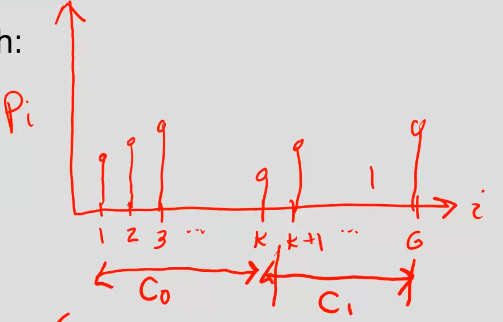 h:
Pi
i
1 2 3 ... K K+1 ... G
C0 C1